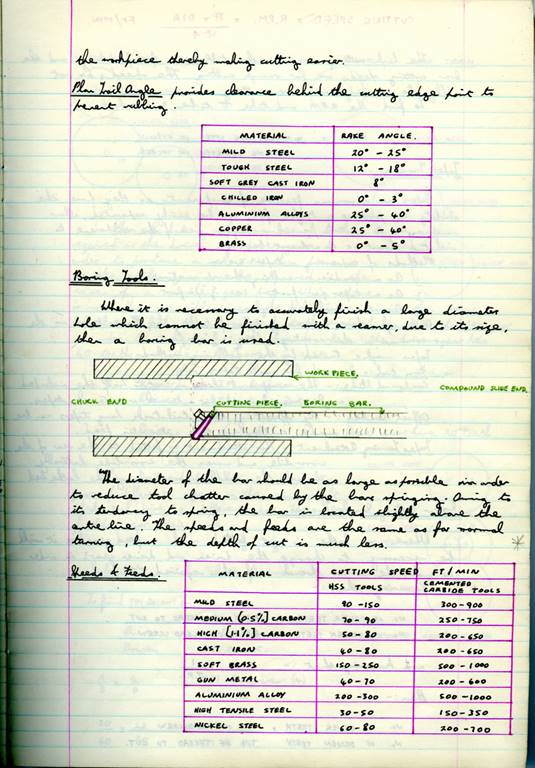 the workpiece thereby making cutting easier.
Plan Trail Angle provides clearance behind the cutting edge point to
prevent rubbing.
MATERIAL RAKE ANGLE.
MILD STEEL 20° - 25°
TOUGH STEEL 12° - 18°
SOFT GREY CAST IRON 8°
CHILLED IRON 0° - 3°
ALUMINIUM ALLOYS 25° - 40°
COPPER 25° - 40°
BRASS 0° - 5°
Boring Tools.
Where it is necessary to accurately finish a large diameter
hole which cannot be finished with a reamer, due to its size,
then a boring bar is used.
WORK PIECE.
COMPOUND SLIDE END.
CHUCK END CUTTING PIECE. BORING BAR.
The diameter of the bar should be as large as possible in order
to reduce tool chatter caused by the bars springing. Owing to
its tendency to spring, the bar is located slightly above the
centre line. The speeds and feeds are the same as for normal
turning, but the depth of cut is much less.
Speeds & Feeds.
MATERIAL CUTTING SPEED FT/MIN
HSS TOOLS CEMENTED CARBIDE TOOLS
MILD STEEL 90 - 150 300 - 900
MEDIUM (0.5%) CARBON 70 - 90 250 - 750
HIGH (1.1%) CARBON 50 - 80 200 - 650
CAST IRON 40 - 80 200 - 650
SOFT BRASS 150 - 250 500 - 1000
GUN METAL 40 - 70 200 - 600
ALUMINIUM ALLOY 200 - 300 500 - 1000
HIGH TENSILE STEEL 30 - 50 150 - 350
NICKEL STEEL 60 - 80 200 - 700